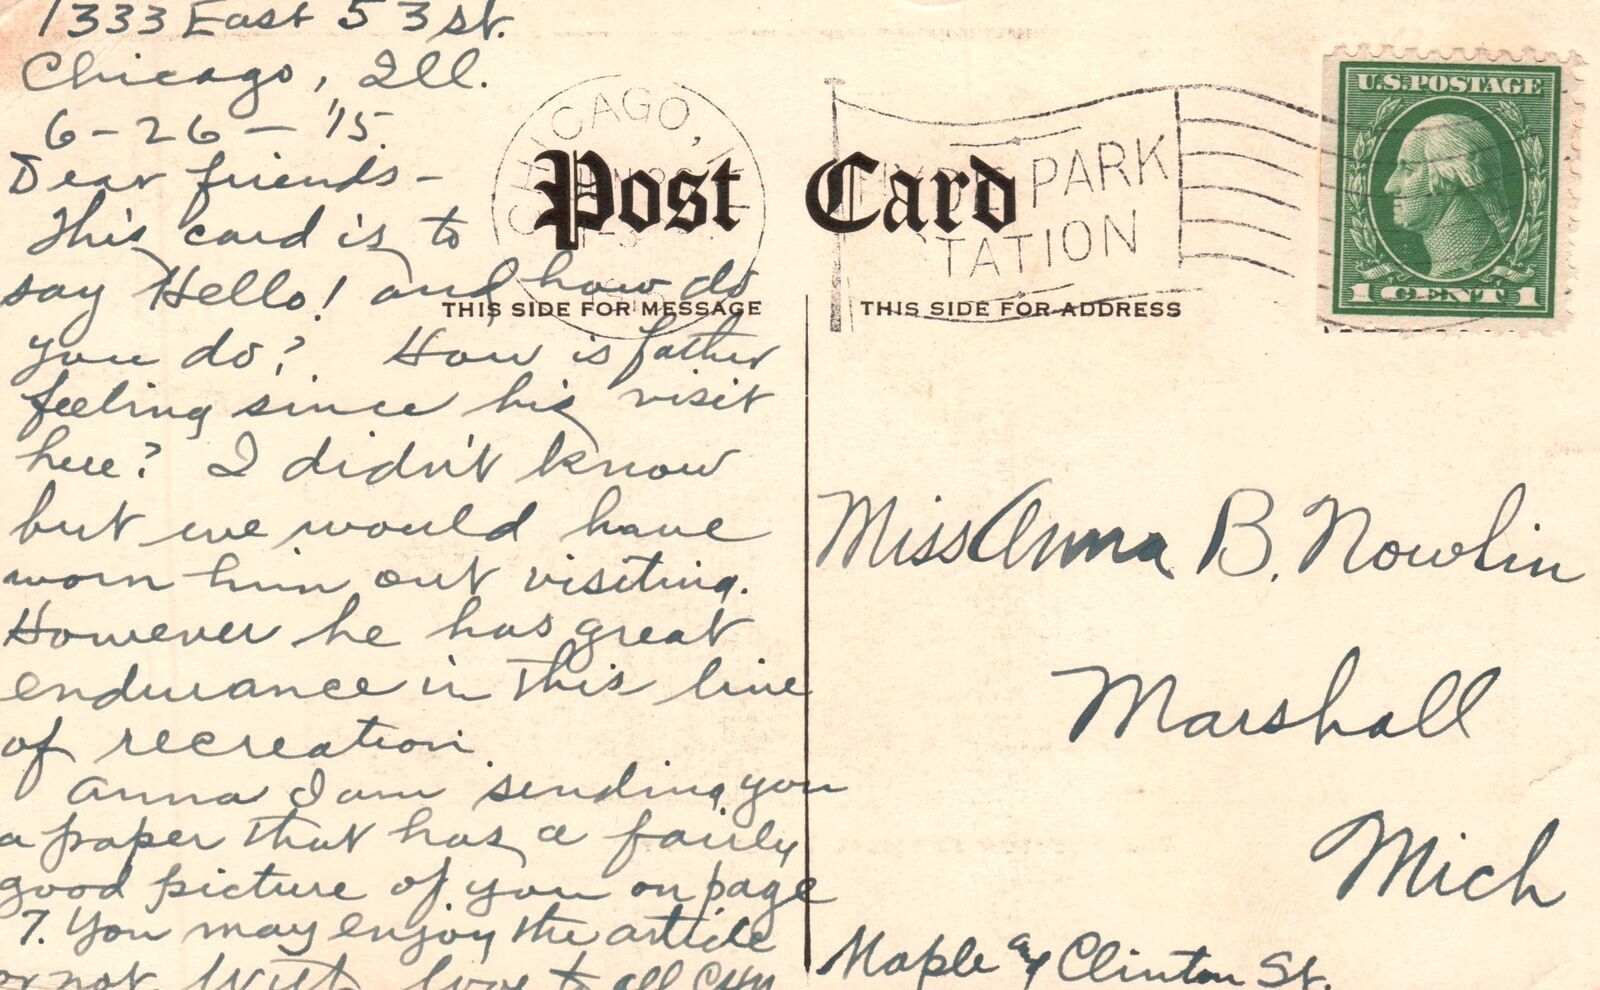 1333 East 53 st.
Chicago, Ill.
6-26-'15.
Dear friends-
This card is to
say Hello! and how do
you do? How is father
feeling since his visit
here? I didn't know
but we would have
worn him out visiting.
However he has great
endurance in this line
of recreation
Anna I am sending you
a paper that has a fairly
good picture of you on page
7. You may enjoy the article
or not. With love to all
Post Card
THIS SIDE FOR MESSAGE
THIS SIDE FOR ADDRESS
CHICAGO,
PARK
STATION
U.S. POSTAGE
1 CENT 1
Miss Anna B. Nowlin
Marshall
Mich
Maple and Clinton St.